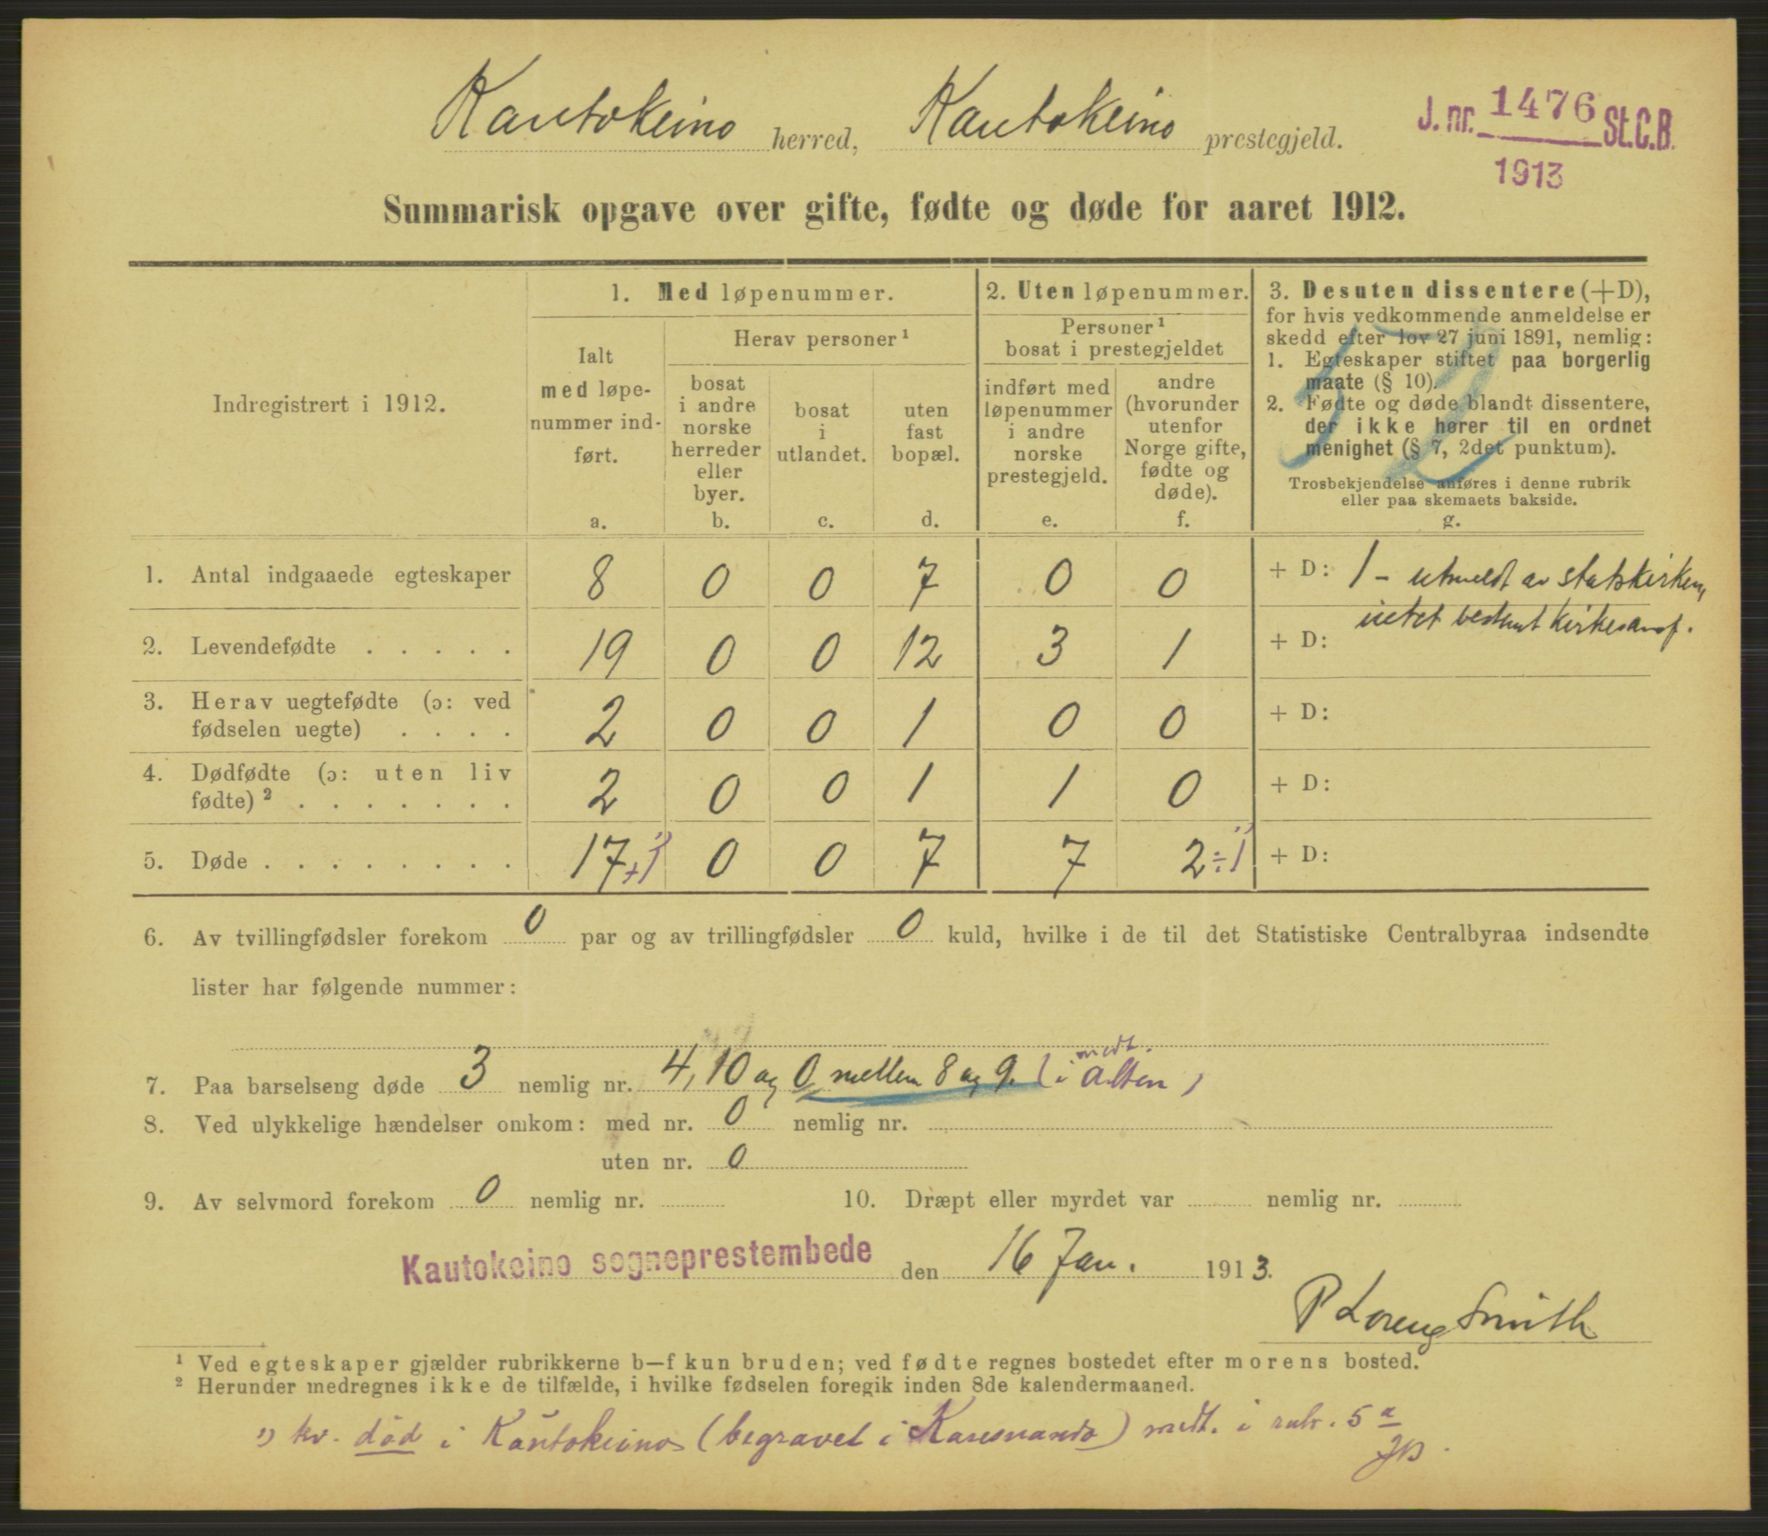 Kautokeino herred, Kautokeino prestegjeld.
J. nr. 1476 St.C.B.
1913
Summarisk opgave over gifte, fødte og døde for aaret 1912.
Indregistrert i 1912.
1. Med løpenummer.
Ialt
med løpe-
nummer ind-
ført.
a.
Herav personer ¹
bosat
i andre
norske
herreder
eller
byer.
b.
bosat
i
utlandet.
c.
uten
fast
bopæl.
d.
2. Uten løpenummer.
Personer ¹
bosat i prestegjeldet
indført med
løpenummer
i andre
norske
prestegjeld.
e.
andre
(hvorunder
utenfor
Norge gifte,
fødte og
døde).
f.
3. Desuten dissentere (+D),
for hvis vedkommende anmeldelse er
skedd efter lov 27 juni 1891, nemlig:
1. Egteskaper stiftet paa borgerlig
maate (§ 10).
2. Fødte og døde blandt dissentere,
der ikke hører til en ordnet
menighet (§ 7, 2det punktum).
Trosbekjendelse anføres i denne rubrik
eller paa skemaets bakside.
g.
52
1. Antal indgaaede egteskaper 8 0 0 7 0 0 + D: 1 – utmeldt av statskirken,
intet bestemt kirkesamf.
2. Levendefødte . . . . . 19 0 0 12 3 1 + D:
3. Herav uegtefødte (ɔ: ved
fødselen uegte) . . . . 2 0 0 1 0 0 + D:
4. Dødfødte (ɔ: uten liv
fødte) ² . . . . . . . 2 0 0 1 1 0 + D:
5. Døde . . . . . . . . 17 +1 ¹) 0 0 7 7 2 ÷1 ¹) + D:
6. Av tvillingfødsler forekom 0 par og av trillingfødsler 0 kuld, hvilke i de til det Statistiske Centralbyraa indsendte
lister har følgende nummer:
7. Paa barselseng døde 3 nemlig nr. 4, 10 og 0 mellem 8 og 9. (medt. i Alten)
8. Ved ulykkelige hændelser omkom: med nr. 0 nemlig nr.
uten nr. 0
9. Av selvmord forekom 0 nemlig nr. 10. Dræpt eller myrdet var nemlig nr.
Kautokeino sogneprestembede den 16 Jan. 1913.
P Lorenz Smith
¹ Ved egteskaper gjælder rubrikkerne b—f kun bruden; ved fødte regnes bostedet efter morens bosted.
² Herunder medregnes ikke de tilfælde, i hvilke fødselen foregik inden 8de kalendermaaned.
¹) kv. död i Kautokeino (begravet i Karesuando) medt. i rubr. 5 a